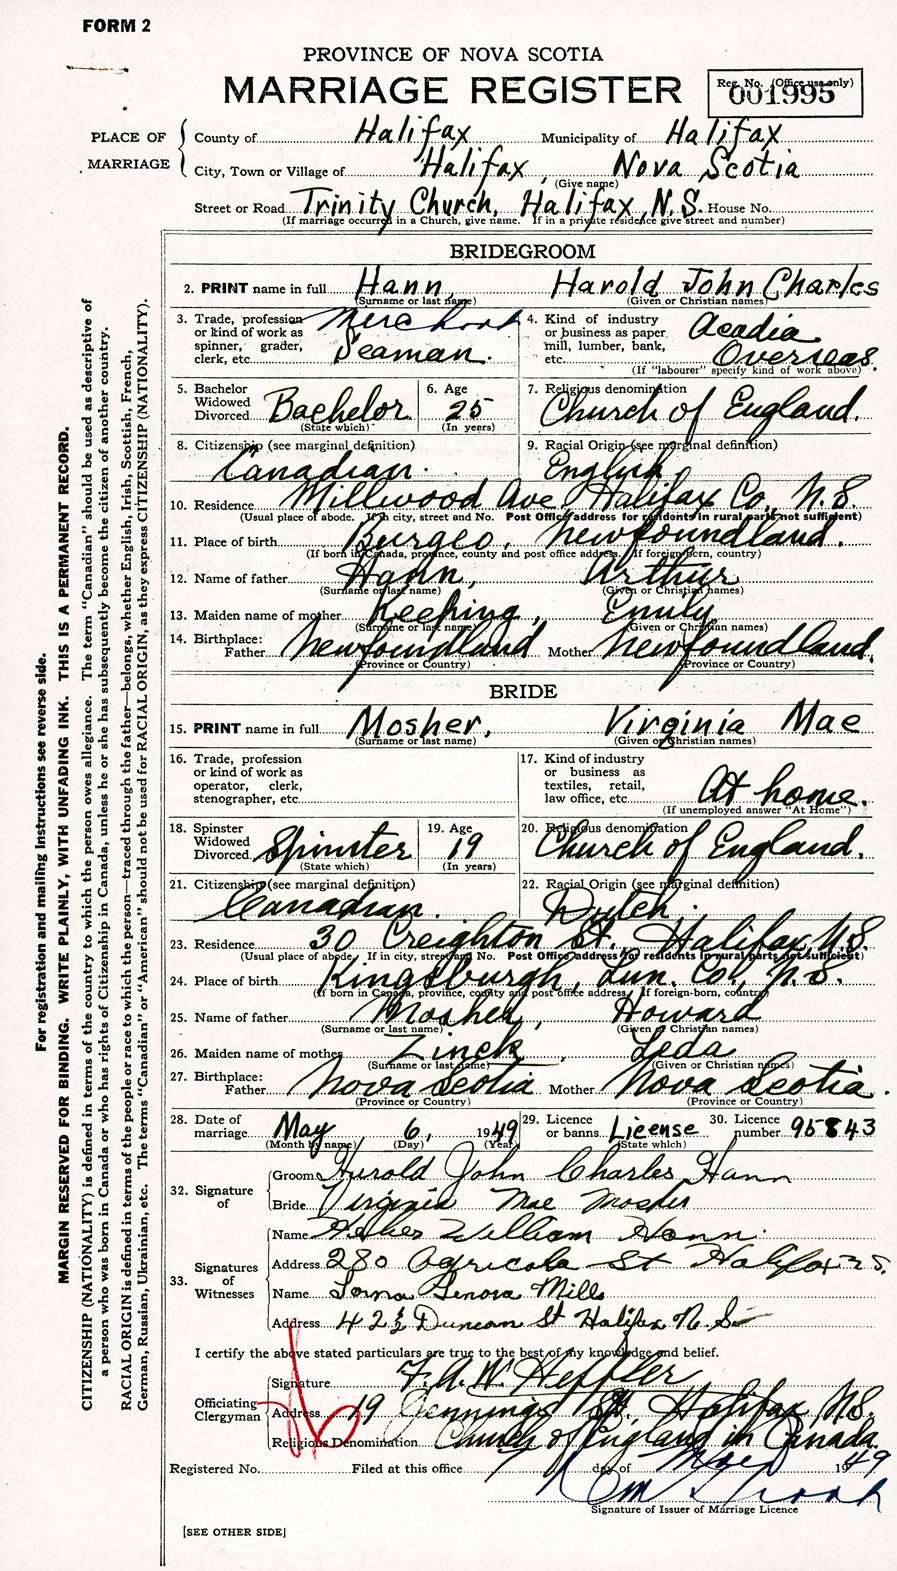 FORM 2
PROVINCE OF NOVA SCOTIA
MARRIAGE REGISTER
Reg. No. (Office use only)
001995
PLACE OF MARRIAGE
County of Halifax Municipality of Halifax
City, Town or Village of Halifax, Nova Scotia
(Give name)
Street or Road Trinity Church, Halifax, N.S. House No.
(If marriage occurred in a Church, give name. If in a private residence give street and number)
BRIDEGROOM
2. PRINT name in full Hann, Harold John Charles
(Surname or last name) (Given or Christian names)
3. Trade, profession or kind of work as spinner, grader, clerk, etc. Seaman.
4. Kind of industry or business as paper mill, lumber, bank, etc. Acadia Overseas.
(If "labourer" specify kind of work above)
5. Bachelor Widowed Divorced Bachelor
(State which)
6. Age 25
(In years)
7. Religious denomination
Church of England.
8. Citizenship (see marginal definition)
Canadian.
9. Racial Origin (see marginal definition)
English
10. Residence Millwood Ave Halifax Co., N.S.
(Usual place of abode. If in city, street and No. Post Office address for residents in rural parts not sufficient)
11. Place of birth Burgeo, Newfoundland.
(If born in Canada, province, county and post office address. If foreign-born, country)
12. Name of father Hann, Arthur
(Surname or last name) (Given or Christian names)
13. Maiden name of mother Keeping, Emily
(Surname or last name) (Given or Christian names)
14. Birthplace:
Father Newfoundland Mother Newfoundland.
(Province or Country) (Province or Country)
BRIDE
15. PRINT name in full Mosher, Virginia Mae
(Surname or last name) (Given or Christian names)
16. Trade, profession or kind of work as operator, clerk, stenographer, etc.
17. Kind of industry or business as textiles, retail, law office, etc. At home.
(If unemployed answer "At Home")
18. Spinster Widowed Divorced Spinster
(State which)
19. Age 19
(In years)
20. Religious denomination
Church of England.
21. Citizenship (see marginal definition)
Canadian.
22. Racial Origin (see marginal definition)
Dutch.
23. Residence 30 Creighton St. Halifax N.S.
(Usual place of abode. If in city, street and No. Post Office address for residents in rural parts not sufficient)
24. Place of birth Kingsburgh, Lun. Co., N.S.
(If born in Canada, province, county and post office address. If foreign-born, country)
25. Name of father Mosher, Howard
(Surname or last name) (Given or Christian names)
26. Maiden name of mother Zinck, Leda
(Surname or last name) (Given or Christian names)
27. Birthplace:
Father Nova Scotia Mother Nova Scotia.
(Province or Country) (Province or Country)
28. Date of marriage May 6, 1949
(Month by name) (Day) (Year)
29. Licence or banns License
(State which)
30. Licence number 95843
32. Signature of
Groom Harold John Charles Hann
Bride Virginia Mae Mosher
33. Signatures of Witnesses
Name William Hann.
Address 280 Agricola St Halifax
Name Lorna Mills
Address 42½ Duncan St Halifax N.S.
I certify the above stated particulars are true to the best of my knowledge and belief.
Officiating Clergyman
Signature F.A.W. Heffler
Address 19 Jennings St., Halifax N.S.
Religious Denomination Church of England in Canada.
Registered No. Filed at this office day of 1949
Signature of Issuer of Marriage Licence
[SEE OTHER SIDE]
For registration and mailing instructions see reverse side.
MARGIN RESERVED FOR BINDING. WRITE PLAINLY, WITH UNFADING INK. THIS IS A PERMANENT RECORD.
CITIZENSHIP (NATIONALITY) is defined in terms of the country to which the person owes allegiance. The term "Canadian" should be used as descriptive of
a person who was born in Canada or who has rights of Citizenship in Canada, unless he or she has subsequently become the citizen of another country.
RACIAL ORIGIN is defined in terms of the people or race to which the person—traced through the father—belongs, whether English, Irish, Scottish, French,
German, Russian, Ukrainian, etc. The terms "Canadian" or "American" should not be used for RACIAL ORIGIN, as they express CITIZENSHIP (NATIONALITY).